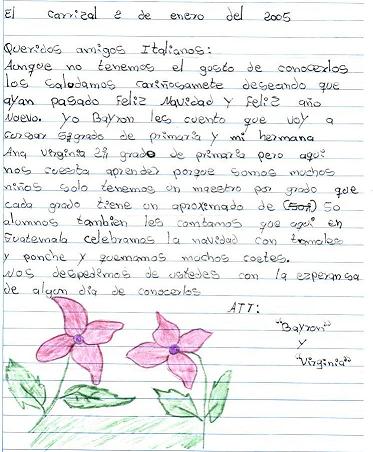 El Carrizal 2 de enero del 2005
Queridos amigos Italianos:
Aunque no tenemos el gusto de conocerlos
los saludamos cariñosamete deseando que
ayan pasado Feliz Navidad y Feliz año
Nuevo. Yo Bayron les cuento que voy a
cursar 5º grado de primaria y mi hermana
Ana Virginia 2º grado de primaria pero aqui
nos cuesta aprender porque somos muchos
niños solo tenemos un maestro por grado que
cada grado tiene un aproximado de (50) 50
alumnos tambien les contamos que aqui en
Guatemala celebramos la navidad con tamales
y ponche y quemamos muchos coetes.
Nos despedimos de ustedes con la esperansa
de algun dia de conocerlos
ATT:
"Bayron"
y
"Virginia"